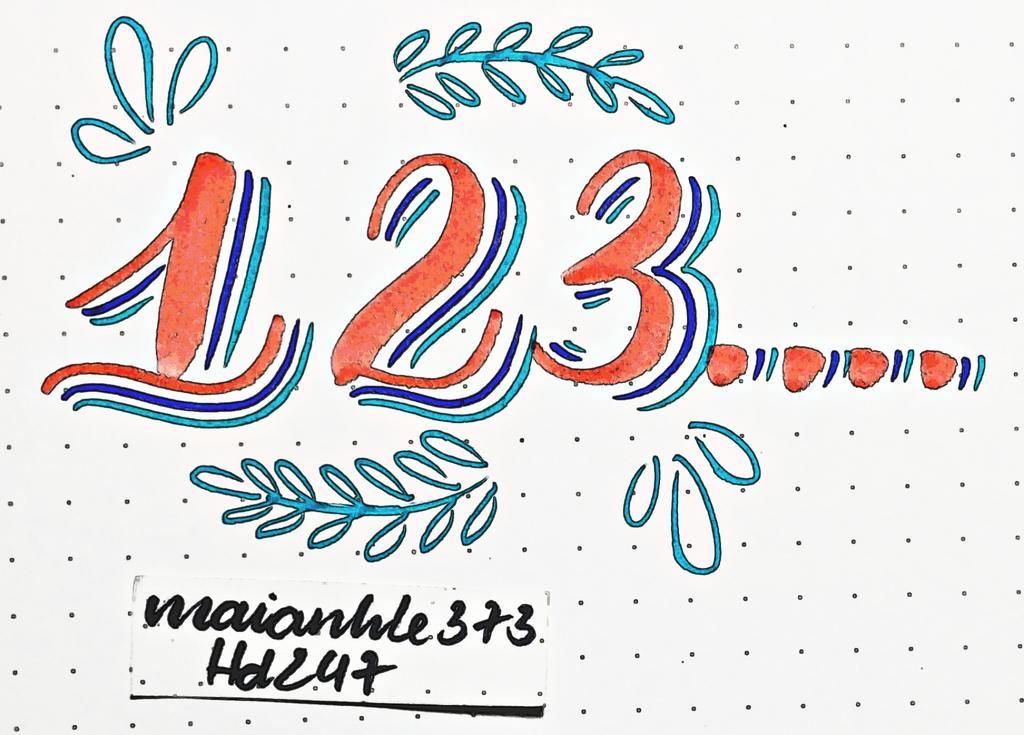 123....
maianhle373
Hd247